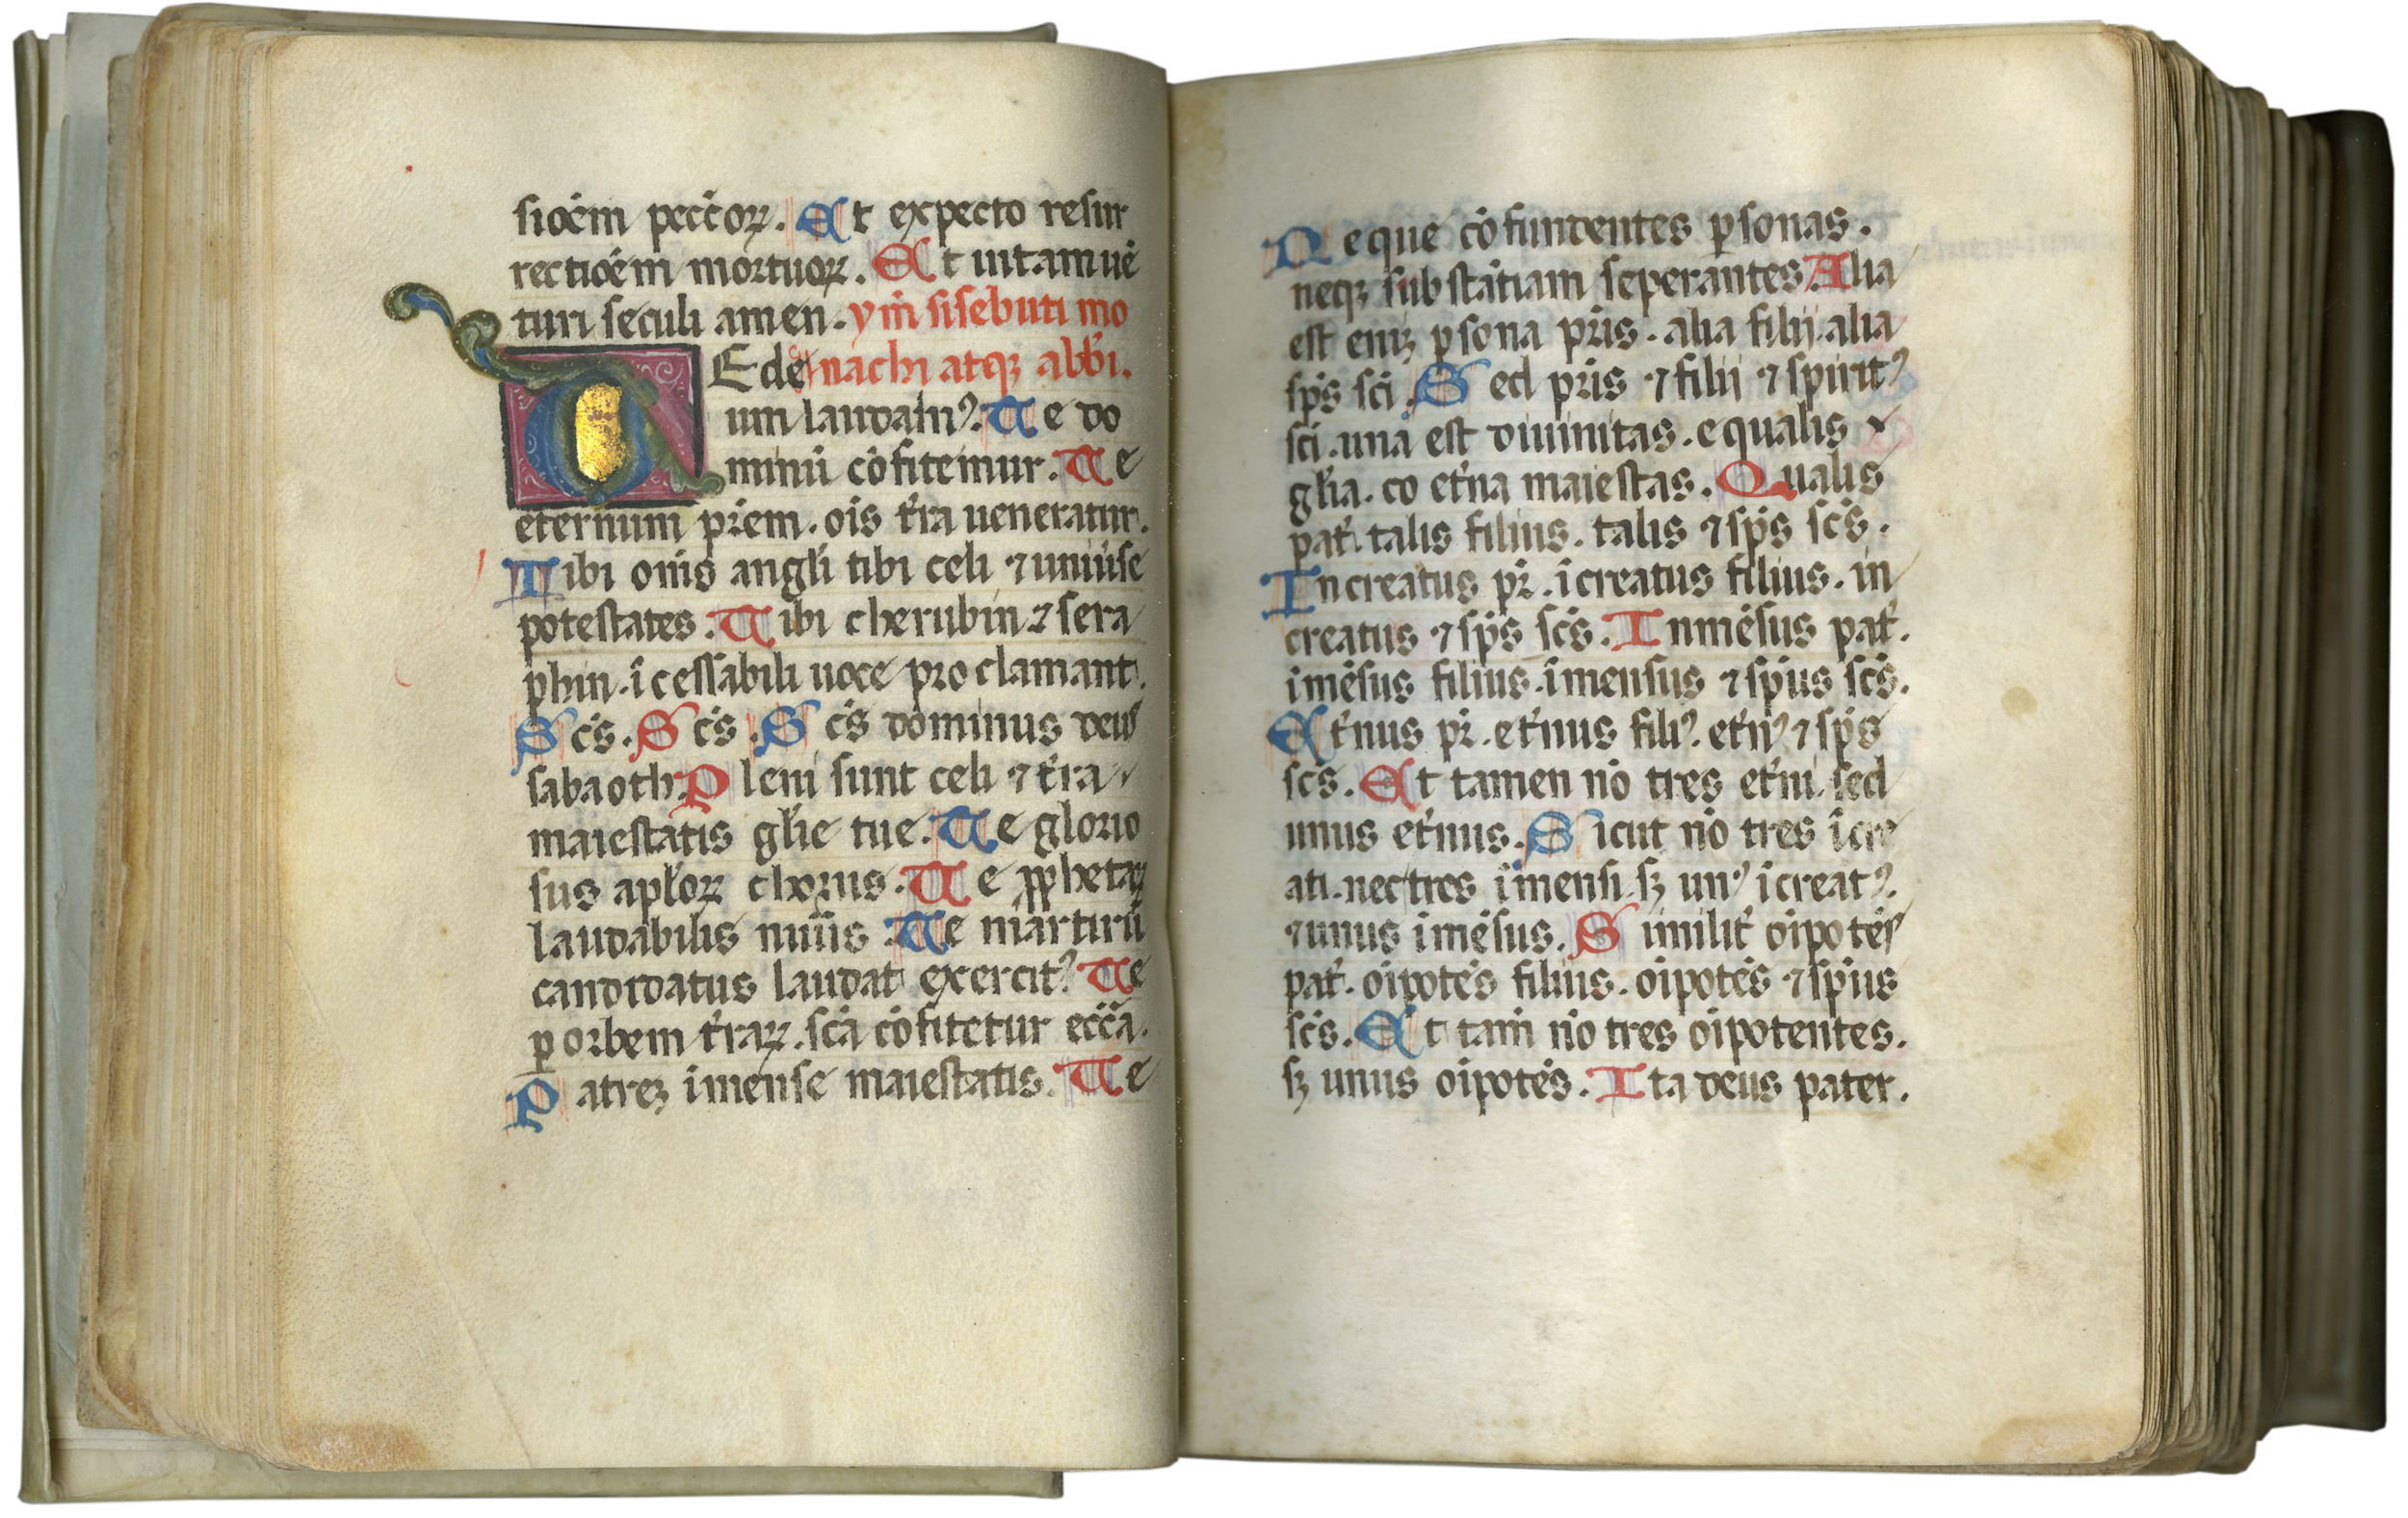 sioēm pecc̄oꝝ. Et expecto resur
rectioēm mortuoꝝ. Et uitam uē
turi seculi amen. ym̄ sisebuti mo
TE de nachi atqꝫ abb̄i.
um laudamꝰ. Te do
minū cōfitemur. Te
eternum pr̄em. oīs t̄ra ueneratur.
Tibi om̄s angl̄i tibi celi ⁊ uniūse
potestates. Tibi cherubin ⁊ sera
phin. īcessabili uoce proclamant.
Sc̄s. Sc̄s. Sc̄s dominus deus
sabaoth. Pleni sunt celi ⁊ t̄ra
maiestatis gl̄ie tue. Te glorio
sus apl̄oꝝ chorus. Te ꝓphetaꝝ
laudabilis nūūs. Te martirū
candidatus laudat exercitꝰ. Te
ꝑ orbem t̄raꝝ. sc̄a cōfitetur ecc̄a.
Patreꝫ īmense maiestatis. Te
Neque cōfundentes ꝑsonas.
neqꝫ substātiam seperantes. Alia
est eniꝫ ꝑsona pr̄is. alia filii. alia
sp̄s sc̄i. Sed pr̄is ⁊ filii ⁊ spiritꝰ
sc̄i. una est diuinitas. equalis
gl̄ia. co et̄na maiestas. Qualis
pat̄. talis filius. talis ⁊ sp̄s sc̄s.
Increatus pr̄. īcreatus filius. in
creatus ⁊ sp̄s sc̄s. Inmēsus pat̄.
īmēsus filius. īmensus ⁊ sp̄us sc̄s.
Et̄nus pr̄. et̄nus filiꝰ. et̄nꝰ ⁊ sp̄s
sc̄s. Et tamen nō tres et̄ni. sed
unus et̄nus. Sicut nō tres īcre
ati. nec tres īmensi. sꝫ unꝰ īcreatꝰ.
⁊ unus īmēsus. Similit̄ oīpotēs
pat̄. oīpotēs filius. oīpotēs ⁊ sp̄us
sc̄s. Et tam̄ nō tres oīpotentes.
sꝫ unus oīpotēs. Ita deus pater.